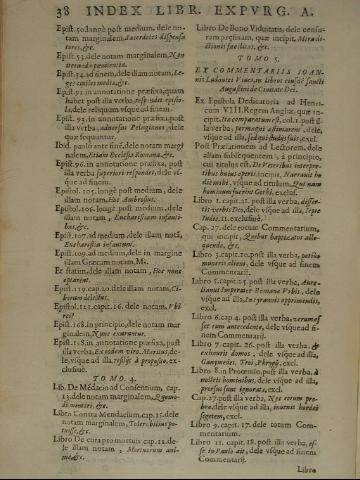 38 INDEX LIBR. EXPVRG. A.
Epist. 50. longè post medium, dele no-
tam marginalem, Sacerdotes dispensa-
tores, &c.
Epist. 54. dele notam marginalem, Non
iteranda pœnitentia.
Epist. 54. ad finem, dele illam notam, Le-
ges ciuiles mulctæ, &c.
Epist. 91. in annotatione præfixa, quam
habet post illa verba, respondet episto-
la, dele reliquum vsque ad finem.
Epist. 95. in annotatione præfixa, post
illa verba, aduersus Pelagianos, dele
quæ sequuntur.
Ibid. paulò ante finē, dele notam margi-
nalem, Etiam Ecclesia Romana, &c.
Epist. 96. in annotatione præfixa, post
illa verba superiori respondet, dele vs-
que ad finem.
Epist. 105. longè post medium, dele
illam notam, Hoc Ambrosius.
Epist. 106. longè post medium, dele
illam notam, Eucharistiam infanti-
bus, &c.
Epist. 107. ad medium, dele illam notā,
Eucharistia infantum.
Epist. 109. ad medium, dele in margine
illam Græcam notam, M.
Et statim, dele illam notam, Hoc nunc
optarem.
Epist. 119. cap. 20. dele illam notam, Ci-
borum delectus.
Epistol. 121. capit. 16. dele notam, Vbi
resi?
Epist. 168. in principio, dele notam mar
ginalem, Nunc contrarium.
Epist. 118. in annotatione præfixa, post
illa verba, Ex eodem viro, Martius, de-
le, vsque ad illa, respōsit à proposito, ex-
clusiuè.
TOMO. 4.
Lib. De Mēdacio ad Consentium, cap.
13. dele notam marginalem, Quomo-
di monitri, &c.
Libro Contra Mendacium, cap. 15. dele
notam marginalem, Tolerabilius po-
tuisse, &c.
Libro De cura pro mortuis cap. 12. de-
le illam notam, Mortuorum ani-
mæ, &c.
Libro De Bono Viduitatis, dele censu-
ram præfixam, quæ incipit, Mera di-
ctionis facilitas, &c.
TOMO 5.
EX COMMENTARIIS IOAN-
nis Ludouici Viues, in libros eiusdē sancti
Augustini de Ciuitate Dei.
Ex Epistola Dedicatoria ad Henri-
cum VIII. Regem Angliæ, quæ in-
cipit, Ita comparatum est, col. 1. post il-
la verba, permagni æstimarem, dele,
vsque ad illa, sed qui studiis suis, excl.
Post Præfationem ad Lectorem, dele
aliam subsequentem, à principio,
cui titulus est, De Veteribus interpre-
tibus huius operis, incipit, Narraui hu
ic mihi, vsque ad titulum, Qui nam
hominum fuerint Gothi, exclus.
Libro 1. capit. 21. post illa verba, disser-
tis verbis Deo, dele vsque ad illa, Iepte
Iudic. 11. exclusiuè.
Cap. 27. dele totum Commentarium,
qui incipit, Quibus baptizatos allo-
quendo, &c.
Libro 3. capit. 10. post illa verba, pœtica
numeris alieni, dele vsque ad finem
Commentarij.
Libro 5. capit. 25. post illa verba, Aure-
lianus Imperator Romanæ Vrbis, dele
vsque ad illa, In tyrannis opprimendis,
excl.
Libro 6. cap. 4. post illa verba, verum es-
set cum antecedente, dele vsque ad fi-
nem Commentarij.
Libro 7. capit. 26. post illa verba, &
exhaurit domos, dele vsque ad illa,
Cauponales, Troi, Phrygij, excl.
Libr. 8. in Proœmio, post illa verba, à
nullis hominibus, dele vsque ad illa,
prorsus sunt ignorata, excl.
Cap. 27. post illa verba, Nec eorum pro-
bra, dele vsque ad illa, in outis horridi
segetem, excl.
Libro 9. capit. 17. dele totum Com-
mentarium.
Libro 11. capit. 18. post illa verba, es-
se in Paulo ait, dele vsque ad finem
Commentarij.
Libro